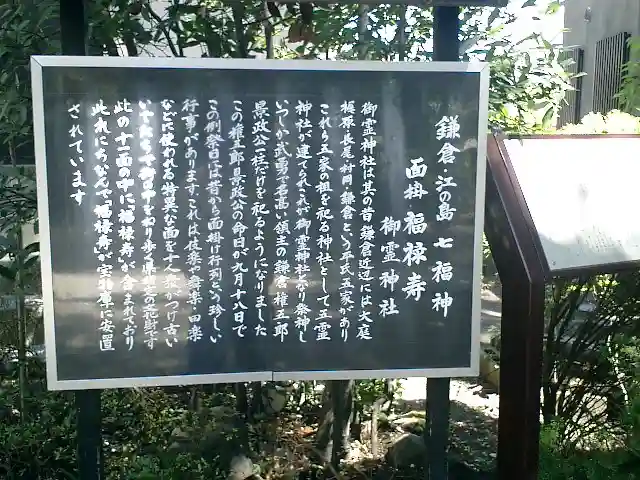 鎌倉・江の島 七福神
面掛 福禄寿
御霊神社
御霊神社は其の昔鎌倉近辺には大庭
梶原・長尾・村岡・鎌倉という平氏五家があり
これら五家の祖を祀る神社として五霊
神社が建てられこれが御霊神社となり祭神も
いつしか武勇で名高い領主の鎌倉権五郎
景政公一柱だけを祀るようになりました
この権五郎景政公の命日が九月十八日で
この例祭日には昔から面掛け行列という珍しい
行事があります これは伎楽や舞楽、田楽
などに使われる特異な面を十人衆がつけ古い
いでたちで御口中をねり歩く県指定の文化財です
此の十一面の中に「福禄寿」が含まれており
此れにちなんで「福禄寿」が宝物庫に安置
されています